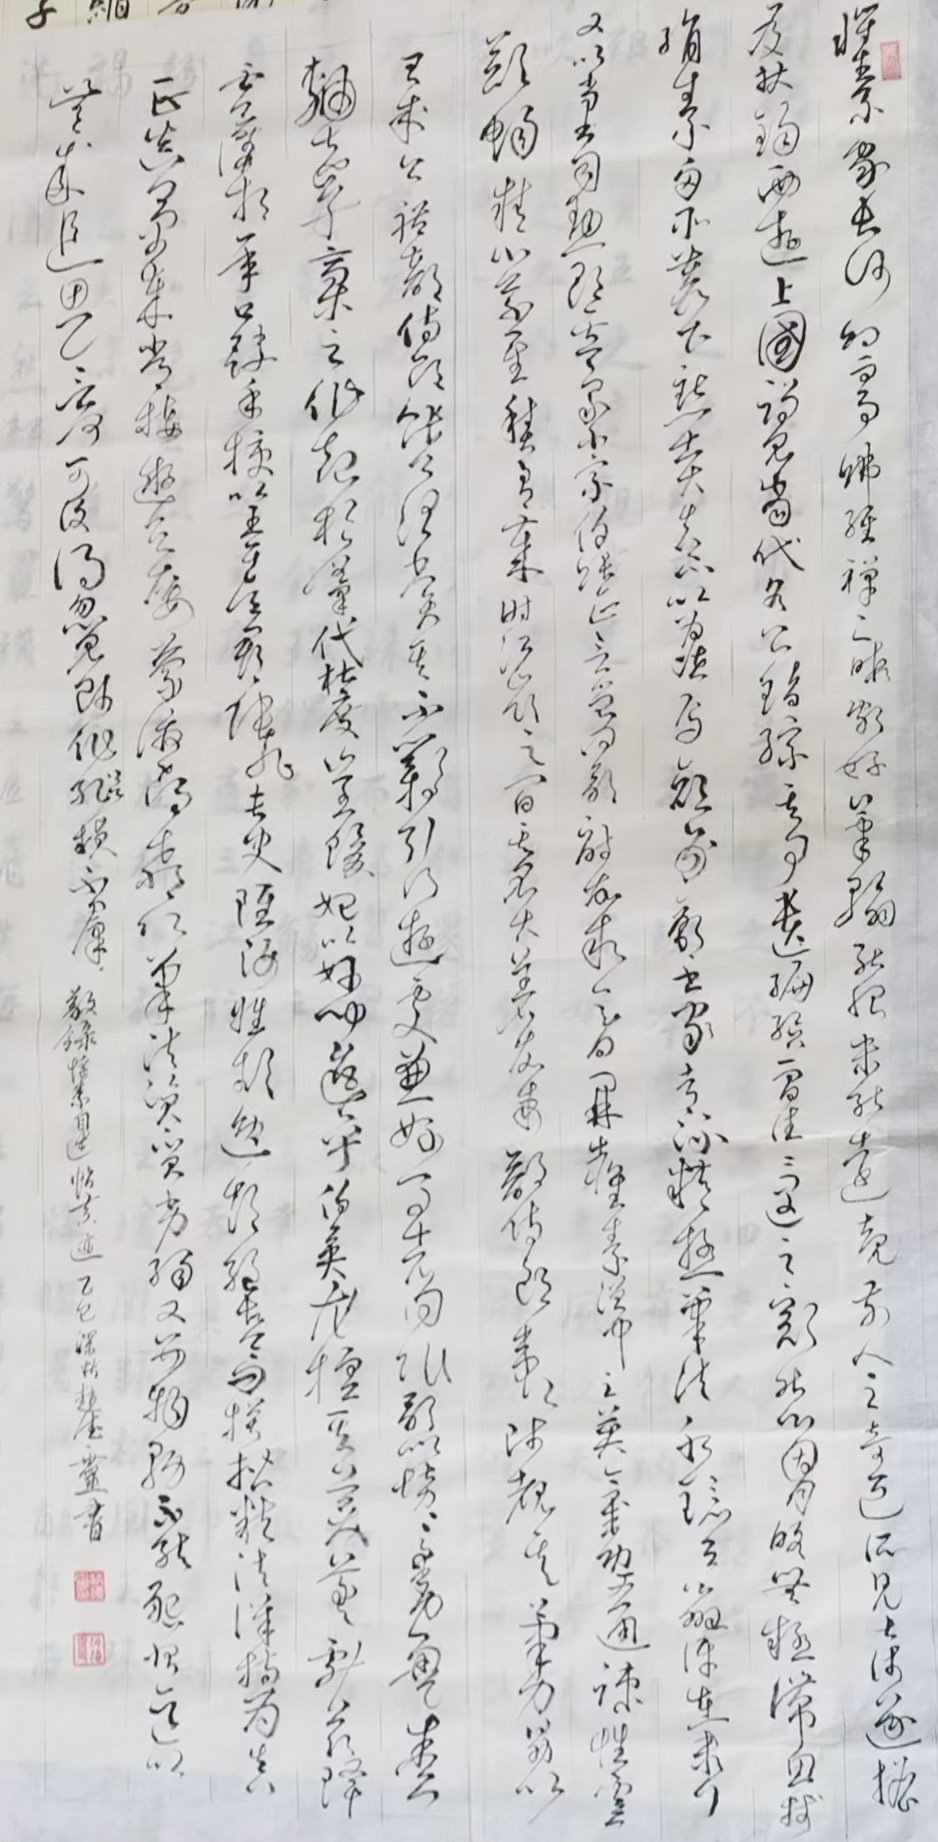 懷素家長沙幼而事佛經禪之暇頗好筆翰然恨未能遠覩前人之奇迹所見甚淺遂擔
笈杖錫西遊上國謁見當代名公錯綜其事遺編絕簡往往遇之豁然心胸略無疑滯魚牋
絹素多所塵點士大夫不以為怪焉顏刑部書家者流精極筆法水鏡之辨許在末行
又以尚書司勳郎盧象小宗伯張正言曾為歌詩故敘之曰開士懷素僧中之英氣概通疏性靈
豁暢精心草聖積有歲時江嶺之間其名大著故吏部侍郎韋公陟覩其筆力勗以
有成今禮部侍郎張公謂賞其不羈引以遊處兼好事者同作歌以贊之動盈卷
軸夫草稿之作起於漢代杜度崔瑗始以妙聞迨乎伯英尤擅其美羲獻茲降
虞陸相承口訣手授以至于吳郡張旭長史雖姿性顛逸超絕古今而模楷精法詳特為真
正真卿早歲常接遊居屢蒙激昂教以筆法資質劣弱又嬰物務不能懇習迄以
無成追思一言何可復得忽見師作縱橫不群 敬錄懷素自敘帖 乙巳深秋 書